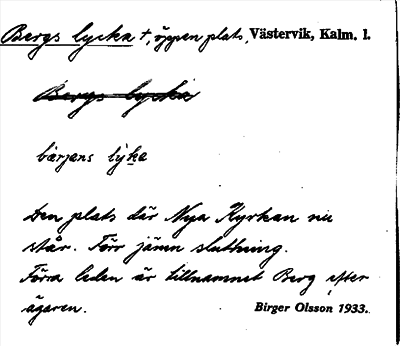 Bergs lycka †, öppen plats, Västervik, Kalm. l.
Bergs lycka
bærjens lýka
Den plats där Nya Kyrkan nu
står. Förr jämn sluttning.
Förra leden är tillnamnet Berg efter
ägaren. Birger Olsson 1933.